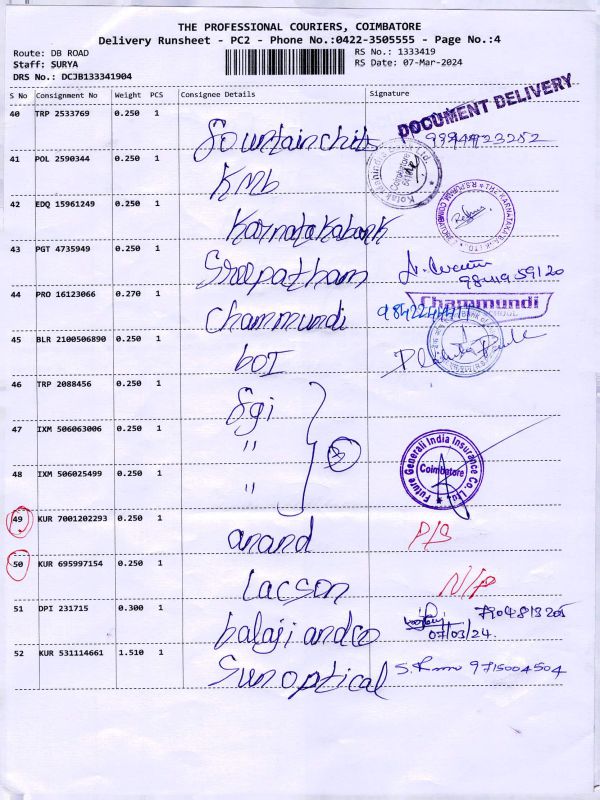 THE PROFESSIONAL COURIERS, COIMBATORE
Delivery Runsheet - PC2 - Phone No.:0422-3505555 - Page No.:4
Route: DB ROAD
Staff: SURYA
DRS No.: DCJB133341904
RS No.: 1333419
RS Date: 07-Mar-2024
S No Consignment No Weight PCS Consignee Details Signature
40 TRP 2533769 0.250 1 Fountainchits
DOCUMENT DELIVERY
41 POL 2590344 0.250 1 KMb
42 EDQ 15961249 0.250 1 Karnatakabank
43 PGT 4735949 0.250 1 Sreepatham
44 PRO 16123066 0.270 1 Chammundi
Chammundi
SCHOOL
45 BLR 2100506890 0.250 1 bOI
46 TRP 2088456 0.250 1 Fgi
47 IXM 506063006 0.250 1 "
48 IXM 506025499 0.250 1 "
3
Future Generali India Insurance Co. Ltd.
Coimbatore
49 KUR 7001202293 0.250 1 anand
50 KUR 695997154 0.250 1 Lacson N/P
51 DPI 231715 0.300 1 balaji andco
07/03/24
52 KUR 531114661 1.510 1 Sun optical 9715004504